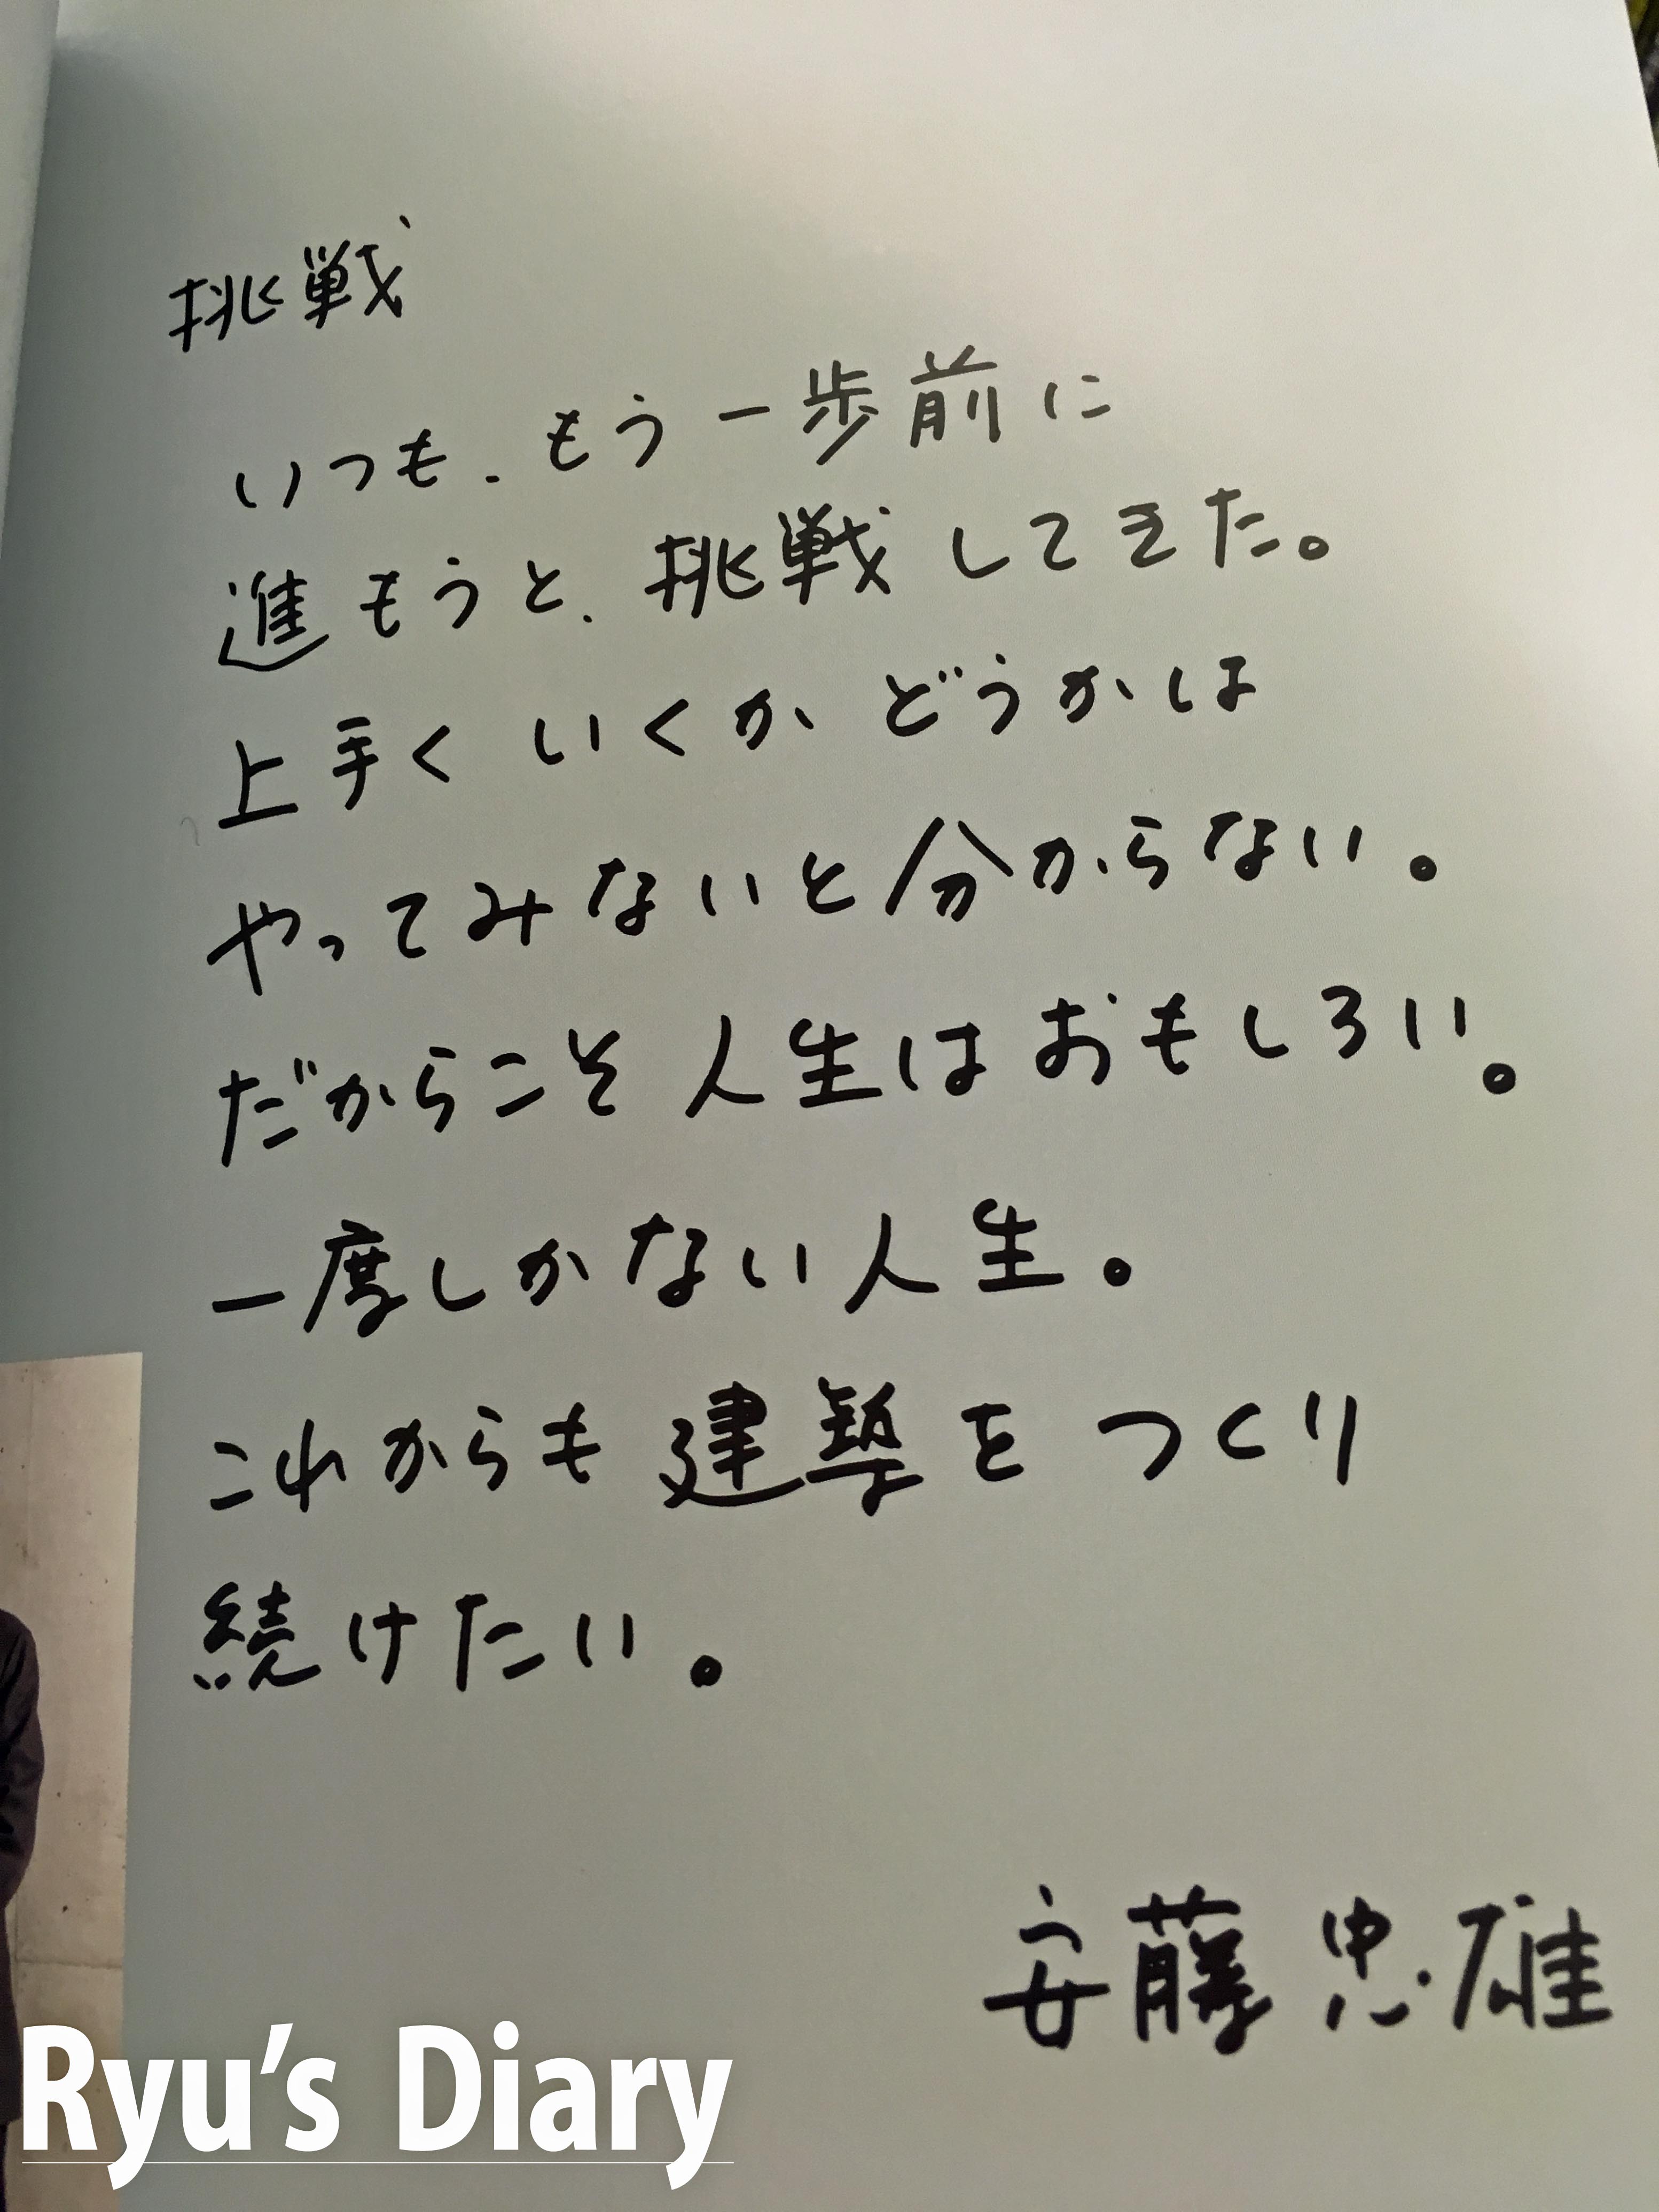 挑戦
いつも、もう一歩前に
進もうと、挑戦してきた。
上手くいくかどうかは
やってみないと分からない。
だからこそ人生はおもしろい。
一度しかない人生。
これからも建築をつくり
続けたい。
安藤忠雄
Ryu's Diary